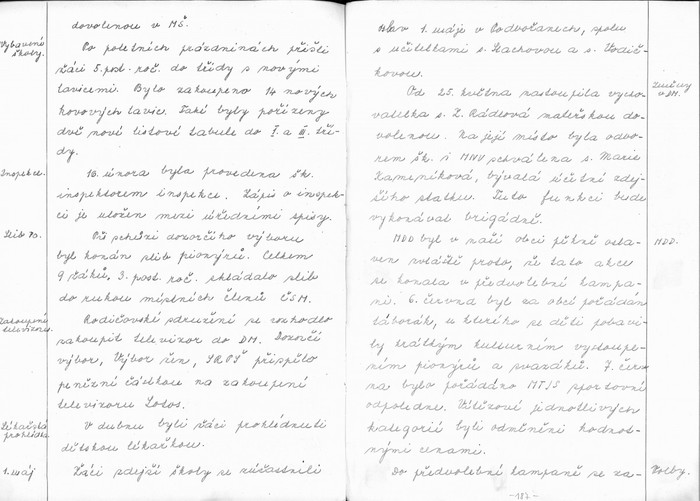 dovolenou v MŠ.
Vybavení
školy.
Po poletních prázdninách přišli
žáci 5. post. roč. do třídy s novými
lavicemi. Bylo zakoupeno 14 nových
kovových lavic. Také byly pořízeny
dvě nové listové tabule do I. a III. tří-
dy.
Inspekce.
16. února byla provedena šk.
inspektorem inspekce. Zápis o inspek-
ci je uložen mezi úředními spisy.
Slib
Při schůzi dozorčího výboru
byl konán slib pionýrů. Celkem
9 žáků, 3. post. roč. skládalo slib
do rukou místních členů ČSM.
Zakoupení
televizoru.
Rodičovské sdružení se rozhodlo
zakoupit televizor do DM. Dozorčí
výbor, Výbor žen, SRPŠ přispělo
peněžní částkou na zakoupení
televizoru Lotos.
Lékařská
prohlídka
V dubnu byli žáci prohlédnuti
dětskou lékařkou.
1. máj
Žáci zdejší školy se zúčastnili
oslav 1. máje v Podvořanech, spolu
s učitelkami s. Stachovou a s. Vodič-
kovou.
Změny
v DM.
Od 25. května nastoupila vycho-
vatelka s. Z. Rádlová mateřskou do-
volenou. Na její místo byla odbo-
rem šk. i MNV schválena s. Marie
Kameníková, bývalá účetní zdej-
šího statku. Tuto funkci bude
vykonávat brigádně.
MDD.
MDD byl v naší obci pěkně osla-
ven zvláště proto, že tato akce
se konala v předvolební kampa-
ni. 6. června byl za obcí pořádán
táborák, u kterého se děti pobavi-
ly krátkým kulturním vystoupe-
ním pionýrů a svazáků. 7. červ-
na bylo pořádáno MTJS sportovní
odpoledne. Vítězové jednotlivých
kategorií byli odměněni hodnot-
nými cenami.
Volby.
Do předvolební kampaně se za-
-187-